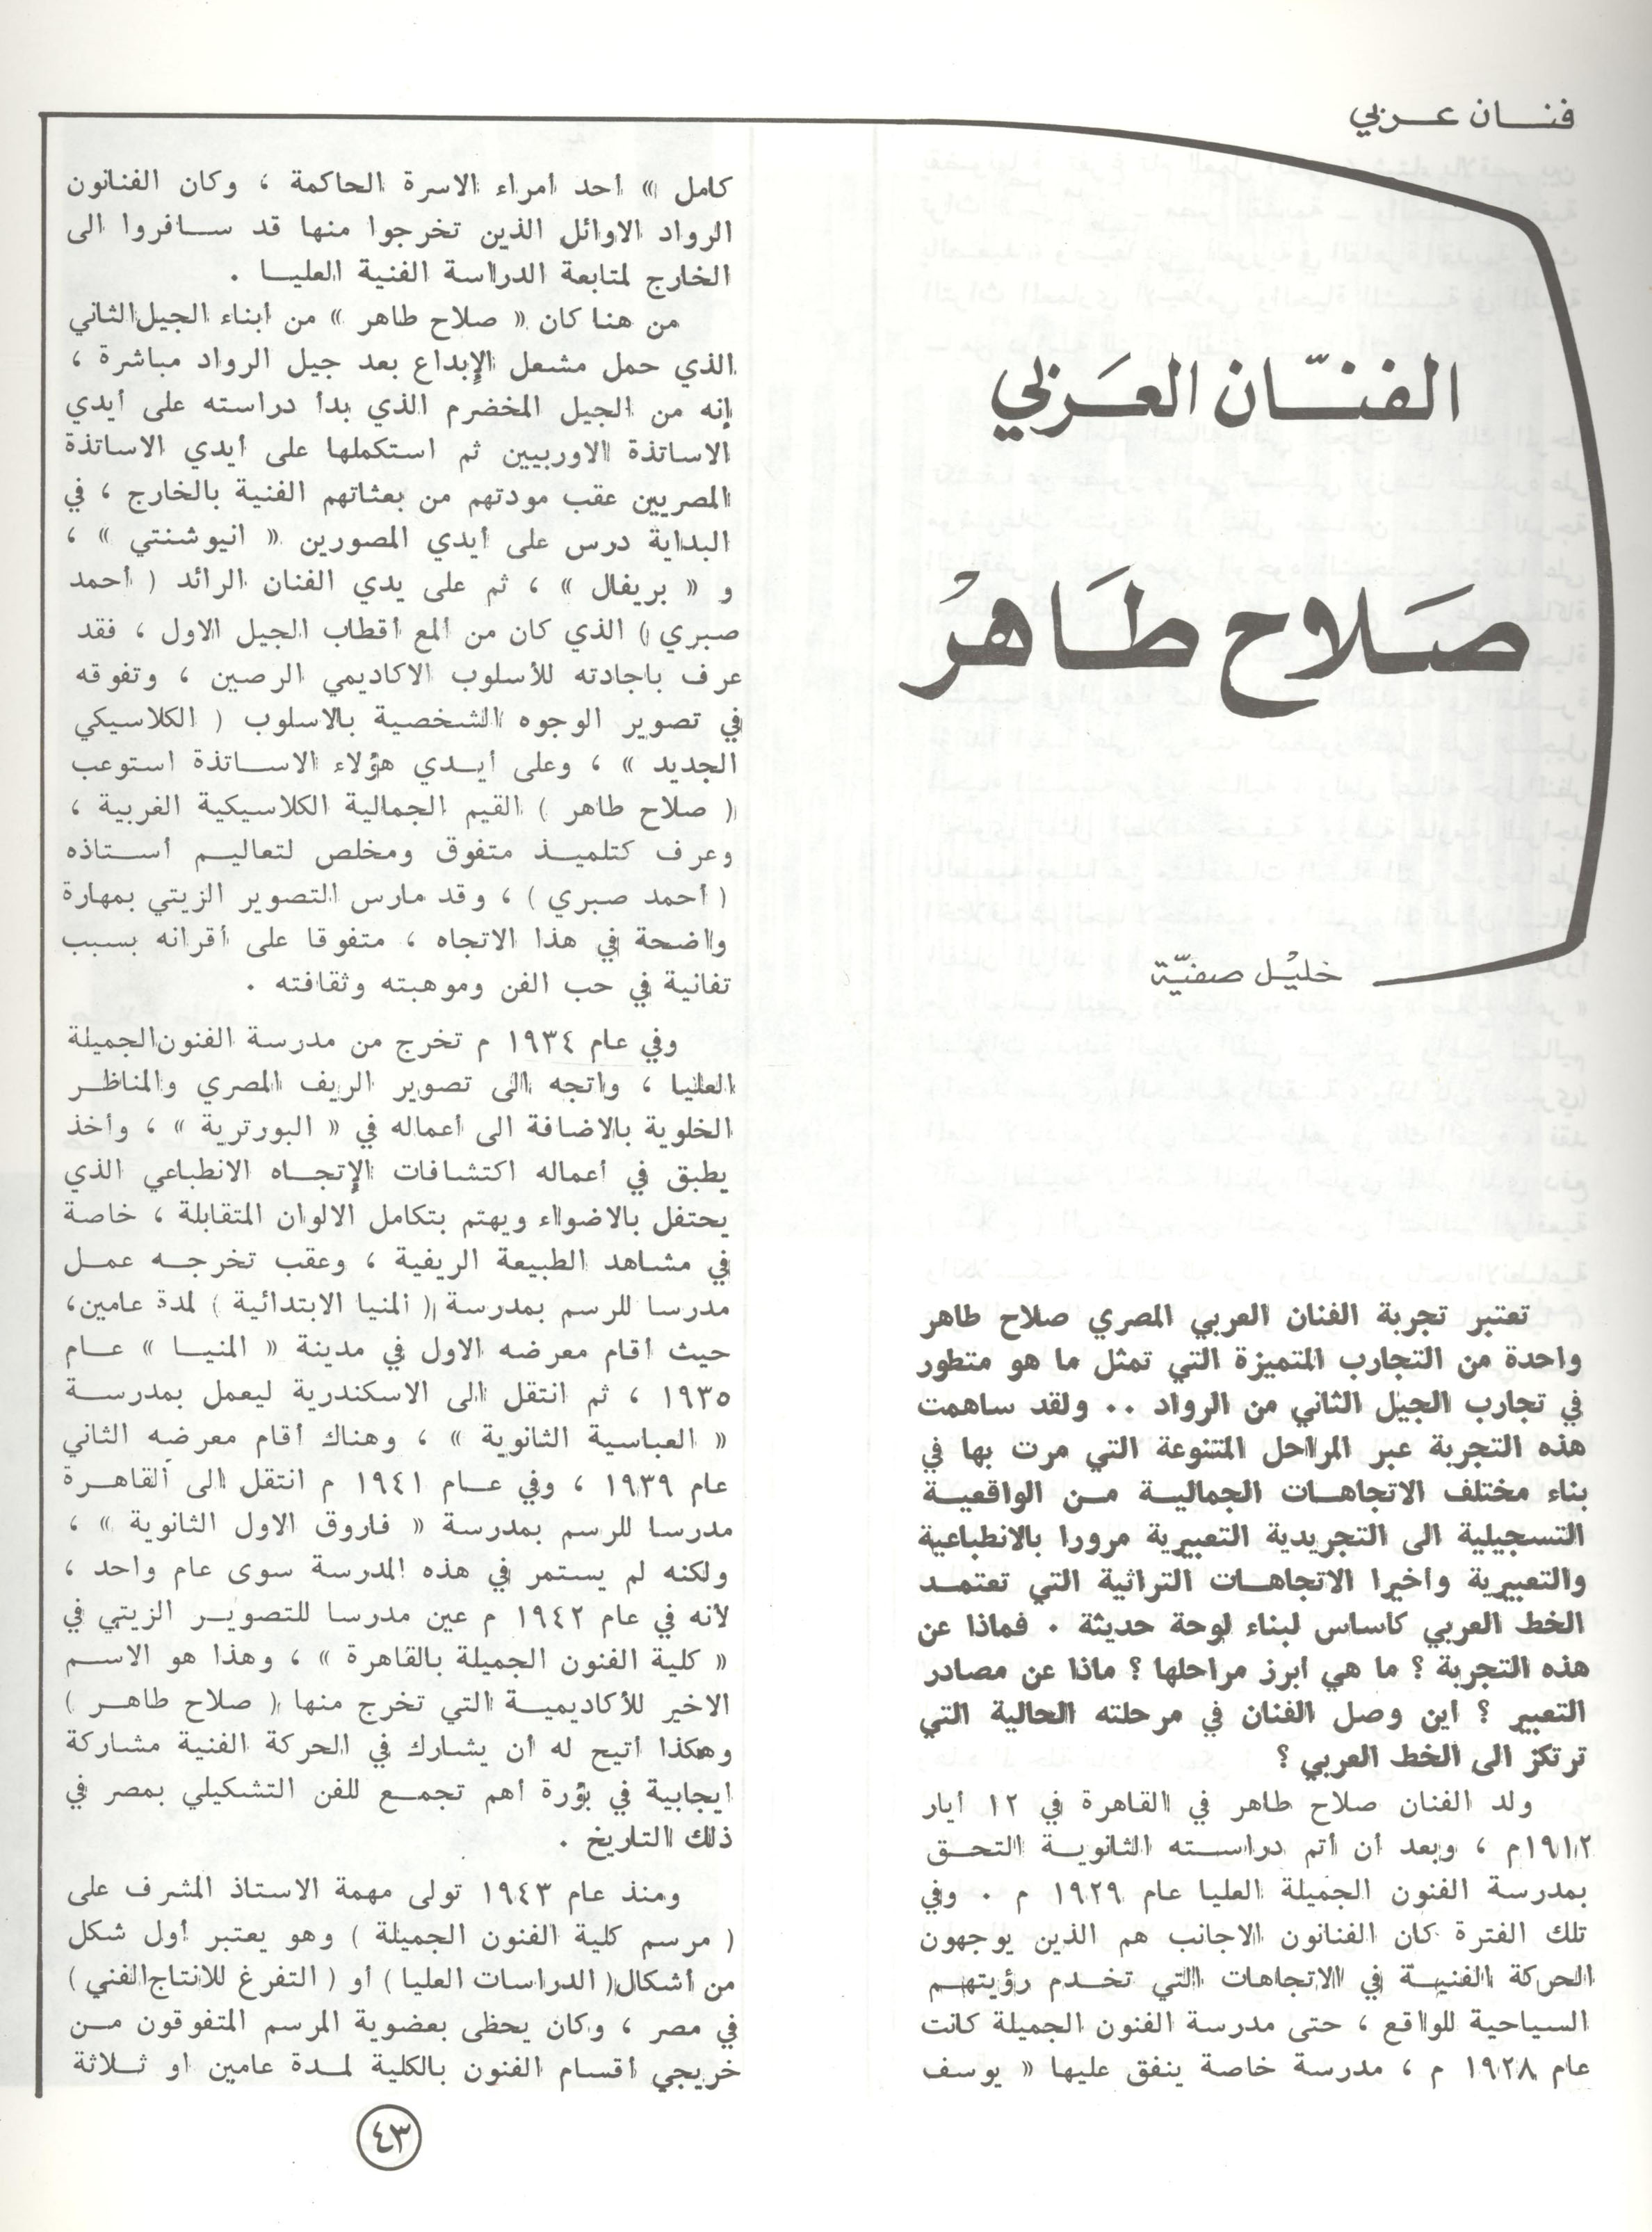 فنان عربي
الفنّان العَربي
صَلاح طَاهرْ
خليْل صفيّة
تعتبر تجربة الفنان العربي المصري صلاح طاهر
واحدة من التجارب المتميزة التي تمثل ما هو متطور
في تجارب الجيل الثاني من الرواد .. ولقد ساهمت
هذه التجربة عبر المراحل المتنوعة التي مرت بها في
بناء مختلف الاتجاهات الجمالية من الواقعية
التسجيلية الى التجريدية التعبيرية مرورا بالانطباعية
والتعبيرية واخيرا الاتجاهات التراثية التي تعتمد
الخط العربي كاساس لبناء لوحة حديثة . فماذا عن
هذه التجربة ؟ ما هي ابرز مراحلها ؟ ماذا عن مصادر
التعبير ؟ اين وصل الفنان في مرحلته الحالية التي
ترتكز الى الخط العربي ؟
ولد الفنان صلاح طاهر في القاهرة في ١٢ أيار
١٩١٢م ، وبعد أن أتم دراسته الثانوية التحق
بمدرسة الفنون الجميلة العليا عام ١٩٢٩ م . وفي
تلك الفترة كان الفنانون الاجانب هم الذين يوجهون
الحركة الفنية في الاتجاهات التي تخدم رؤيتهم
السياحية للواقع ، حتى مدرسة الفنون الجميلة كانت
عام ١٩٢٨ م ، مدرسة خاصة ينفق عليها « يوسف
كامل » أحد أمراء الاسرة الحاكمة ، وكان الفنانون
الرواد الاوائل الذين تخرجوا منها قد سافروا الى
الخارج لمتابعة الدراسة الفنية العليا .
من هنا كان « صلاح طاهر » من أبناء الجيل الثاني
الذي حمل مشعل الإبداع بعد جيل الرواد مباشرة ،
إنه من الجيل المخضرم الذي بدأ دراسته على أيدي
الاساتذة الاوربيين ثم استكملها على أيدي الاساتذة
المصريين عقب مودتهم من بعثاتهم الفنية بالخارج ، في
البداية درس على أيدي المصورين « انيوشنتي » ،
و « بريفال » ، ثم على يدي الفنان الرائد ( أحمد
صبري ) الذي كان من ألمع أقطاب الجيل الاول ، فقد
عرف باجادته للأسلوب الاكاديمي الرصين ، وتفوقه
في تصوير الوجوه الشخصية بالاسلوب ( الكلاسيكي
الجديد » ، وعلى أيدي هؤلاء الاساتذة استوعب
( صلاح طاهر ) القيم الجمالية الكلاسيكية الغربية ،
وعرف كتلميذ متفوق ومخلص لتعاليم أستاذه
( أحمد صبري ) ، وقد مارس التصوير الزيتي بمهارة
واضحة في هذا الاتجاه ، متفوقا على أقرانه بسبب
تفانية في حب الفن وموهبته وثقافته .
وفي عام ١٩٣٤ م تخرج من مدرسة الفنون الجميلة
العليا ، واتجه الى تصوير الريف المصري والمناظر
الخلوية بالاضافة الى أعماله في « البورترية » ، وأخذ
يطبق في أعماله اكتشافات الإتجاه الانطباعي الذي
يحتفل بالاضواء ويهتم بتكامل الالوان المتقابلة ، خاصة
في مشاهد الطبيعة الريفية ، وعقب تخرجه عمل
مدرسا للرسم بمدرسة ( المنيا الابتدائية ) لمدة عامين،
حيث أقام معرضه الاول في مدينة « المنيا » عام
١٩٣٥ ، ثم انتقل الى الاسكندرية ليعمل بمدرسة
« العباسية الثانوية » ، وهناك أقام معرضه الثاني
عام ١٩٣٩ ، وفي عام ١٩٤١ م انتقل الى القاهرة
مدرسا للرسم بمدرسة « فاروق الاول الثانوية » ،
ولكنه لم يستمر في هذه المدرسة سوى عام واحد ،
لأنه في عام ١٩٤٢ م عين مدرسا للتصوير الزيتي في
« كلية الفنون الجميلة بالقاهرة » ، وهذا هو الاسم
الاخير للأكاديمية التي تخرج منها ( صلاح طاهر )
وهكذا أتيح له أن يشارك في الحركة الفنية مشاركة
ايجابية في بؤرة أهم تجمع للفن التشكيلي بمصر في
ذلك التاريخ .
ومنذ عام ١٩٤٣ تولى مهمة الاستاذ المشرف على
( مرسم كلية الفنون الجميلة ) وهو يعتبر أول شكل
من أشكال ( الدراسات العليا ) أو ( التفرغ للانتاج الفني )
في مصر ، وكان يحظى بعضوية المرسم المتفوقون من
خريجي أقسام الفنون بالكلية لمدة عامين او ثلاثة
٤٣